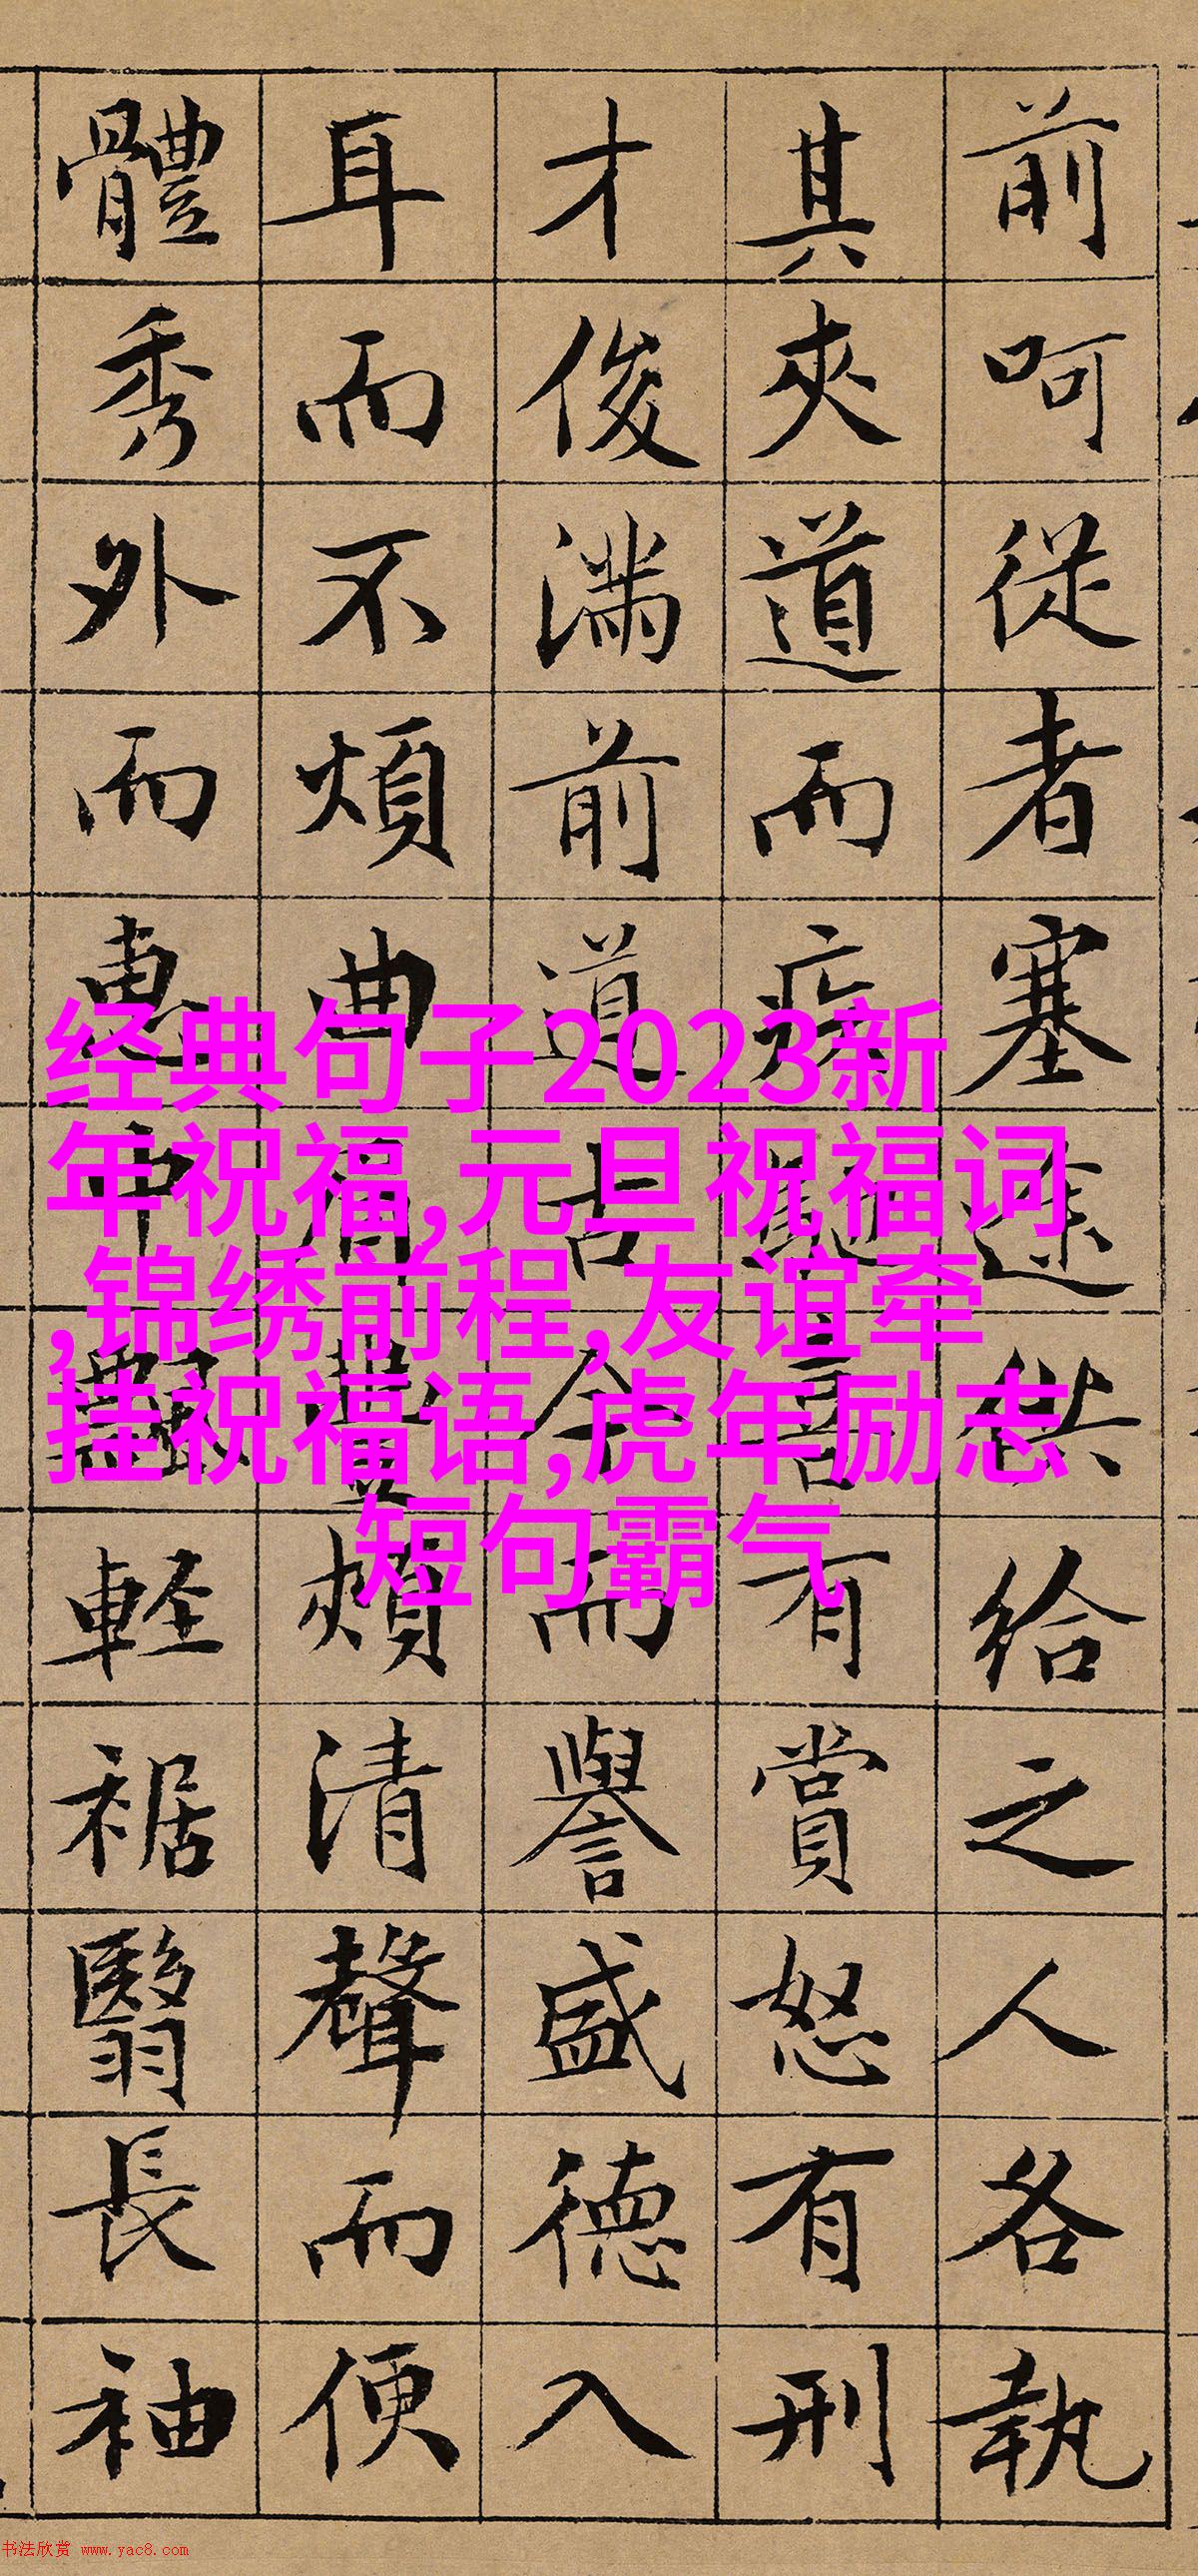 前呵從者塞途供給之人各執
其夾道而疾馳喜有賞怒有刑
才俊滿前道古今而譽盛德入
耳而不煩曲眉豐頰清聲而便
體秀外而惠中飄輕裾翳長袖
经典句子2023新
年祝福,元旦祝福词
,锦绣前程,友谊牵
挂祝福语,虎年励志
短句霸气
书法欣赏 www.yac8.com